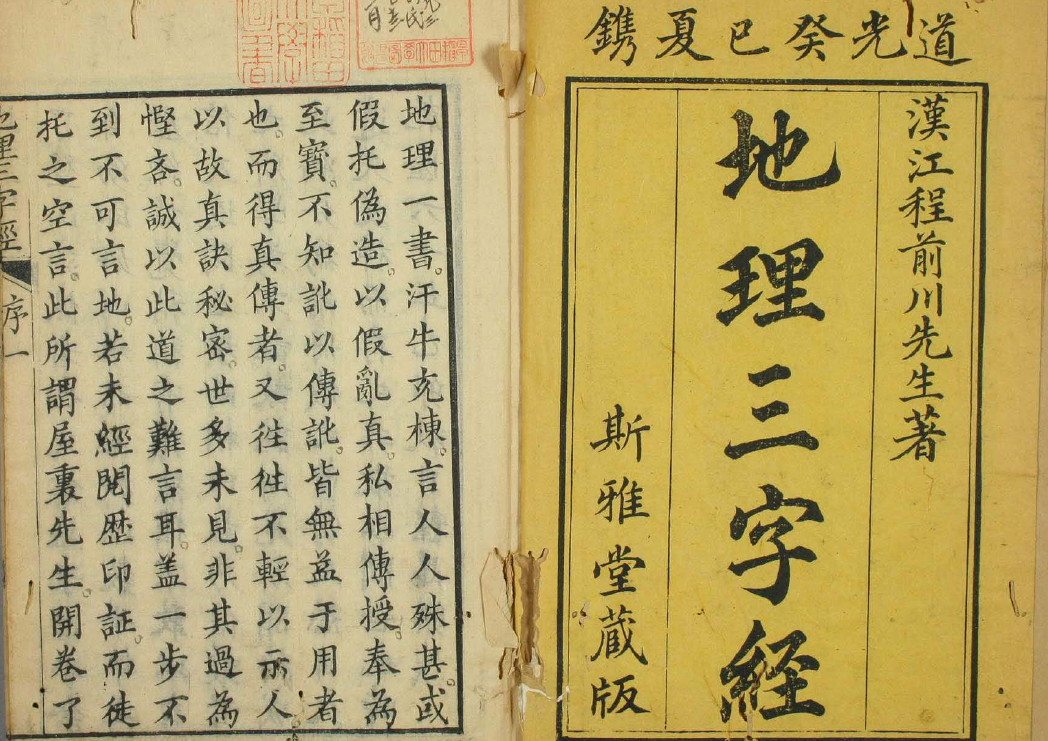 道光癸巳夏鐫
漢江程前川先生著
地理三字經
斯雅堂蔵版
地理一書。汗牛充棟。言人人殊甚。或
假托偽造。以假亂真。私相傳授。奉為
至寳。不知訛以傳訛。皆無益于用者
也。而得真傳者。又徃徃不輕以示人
以故真訣秘宻。世多未見。非其過為
慳吝。誠以此道之難言耳。盖一步不
到不可言地。若未經閱歴印証。而徒
托之空言。此所謂屋裏先生。開卷了
地理三字經
序一